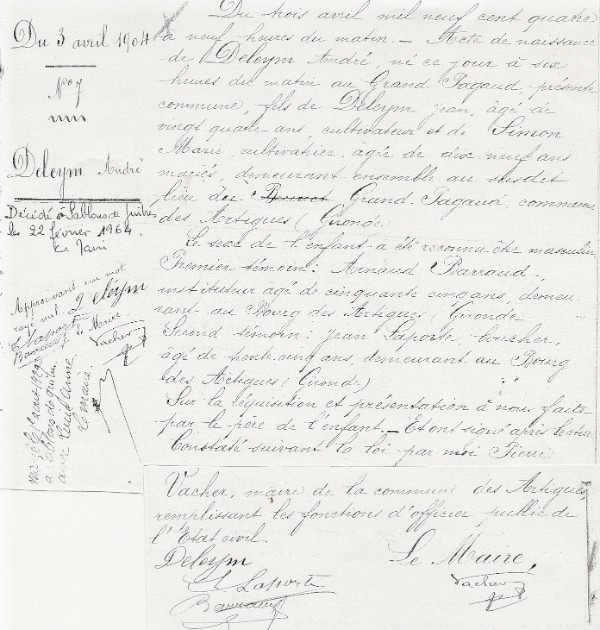 Du 3 avril 1904
N° 7
Deleym André
Décédé à Sablons de Guitres
le 22 février 1964.
Le Maire
Approuvant un mot
rayé nul. Deleym
E. Laporte Le Maire
Barraud Vacher
à Sablons de Guitres
avec
Le maire
Du trois avril mil neuf cent quatre
à neuf heures du matin. _ Acte de naissance
de Deleym André, né ce jour à six
heures du matin au Grand Pagaud, présente
commune, fils de Deleym Jean, âgé de
vingt quatre ans, cultivateur et de Simon
Marie, cultivatrice, âgée de dix neuf ans
mariés, demeurant ensemble au susdit
lieu de Grand Pagaud, commune
des Artigues (Gironde)
Le sexe de l'enfant a été reconnu être masculin
Premier témoin: Arnaud Barraud,
instituteur âgé de cinquante cinq ans, demeu
rant au Bourg des Artigues (Gironde
Second témoin: Jean Laporte, boucher,
âgé de trente cinq ans, demeurant au Bourg
des Artigues (Gironde)
Sur la réquisition et présentation à nous faite
par le père de l'enfant._ Et ont signé après lecture
Constaté suivant la loi par moi Pierre
Vacher, maire de la commune des Artigues,
remplissant les fonctions d'officier public de
l'Etat civil.
Deleym Le Maire,
E. Laporte Vacher
Barraud